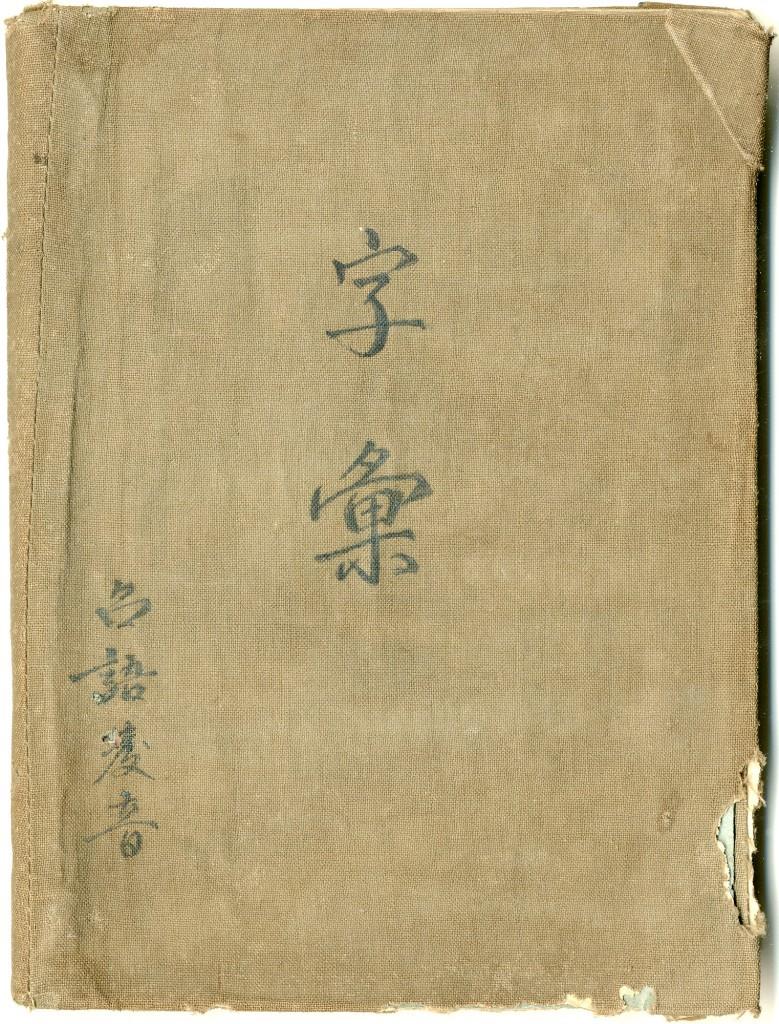 字彙
台語發音